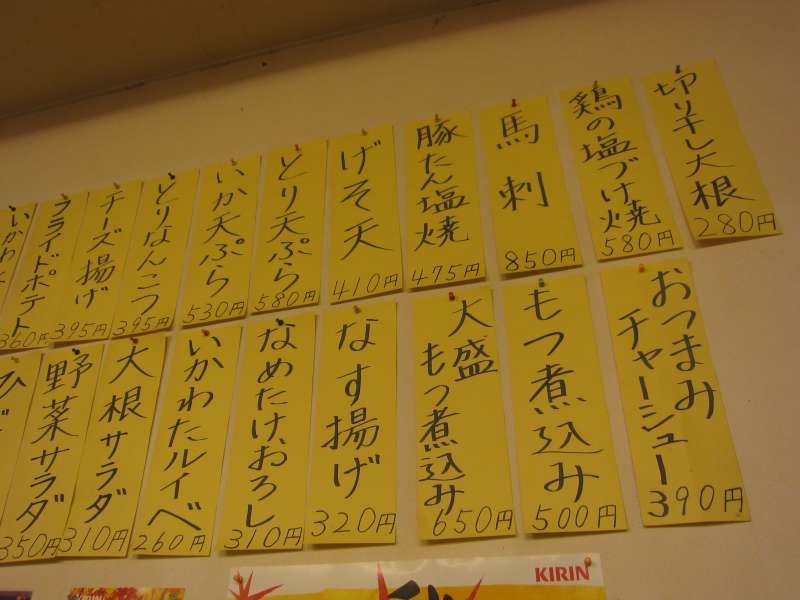 切り干し大根
280円
鶏の塩づけ焼
580円
馬刺
850円
豚たん塩焼
475円
げそ天
410円
とり天ぷら
580円
いか天ぷら
530円
とりなんこつ
395円
チーズ揚げ
395円
フライドポテト
360円
いかわ
おつまみ
チャーシュー
390円
もつ煮込み
500円
大盛
もつ煮込み
650円
なす揚げ
320円
なめたけおろし
310円
いかわたルイベ
260円
大根サラダ
310円
野菜サラダ
350円
KIRIN